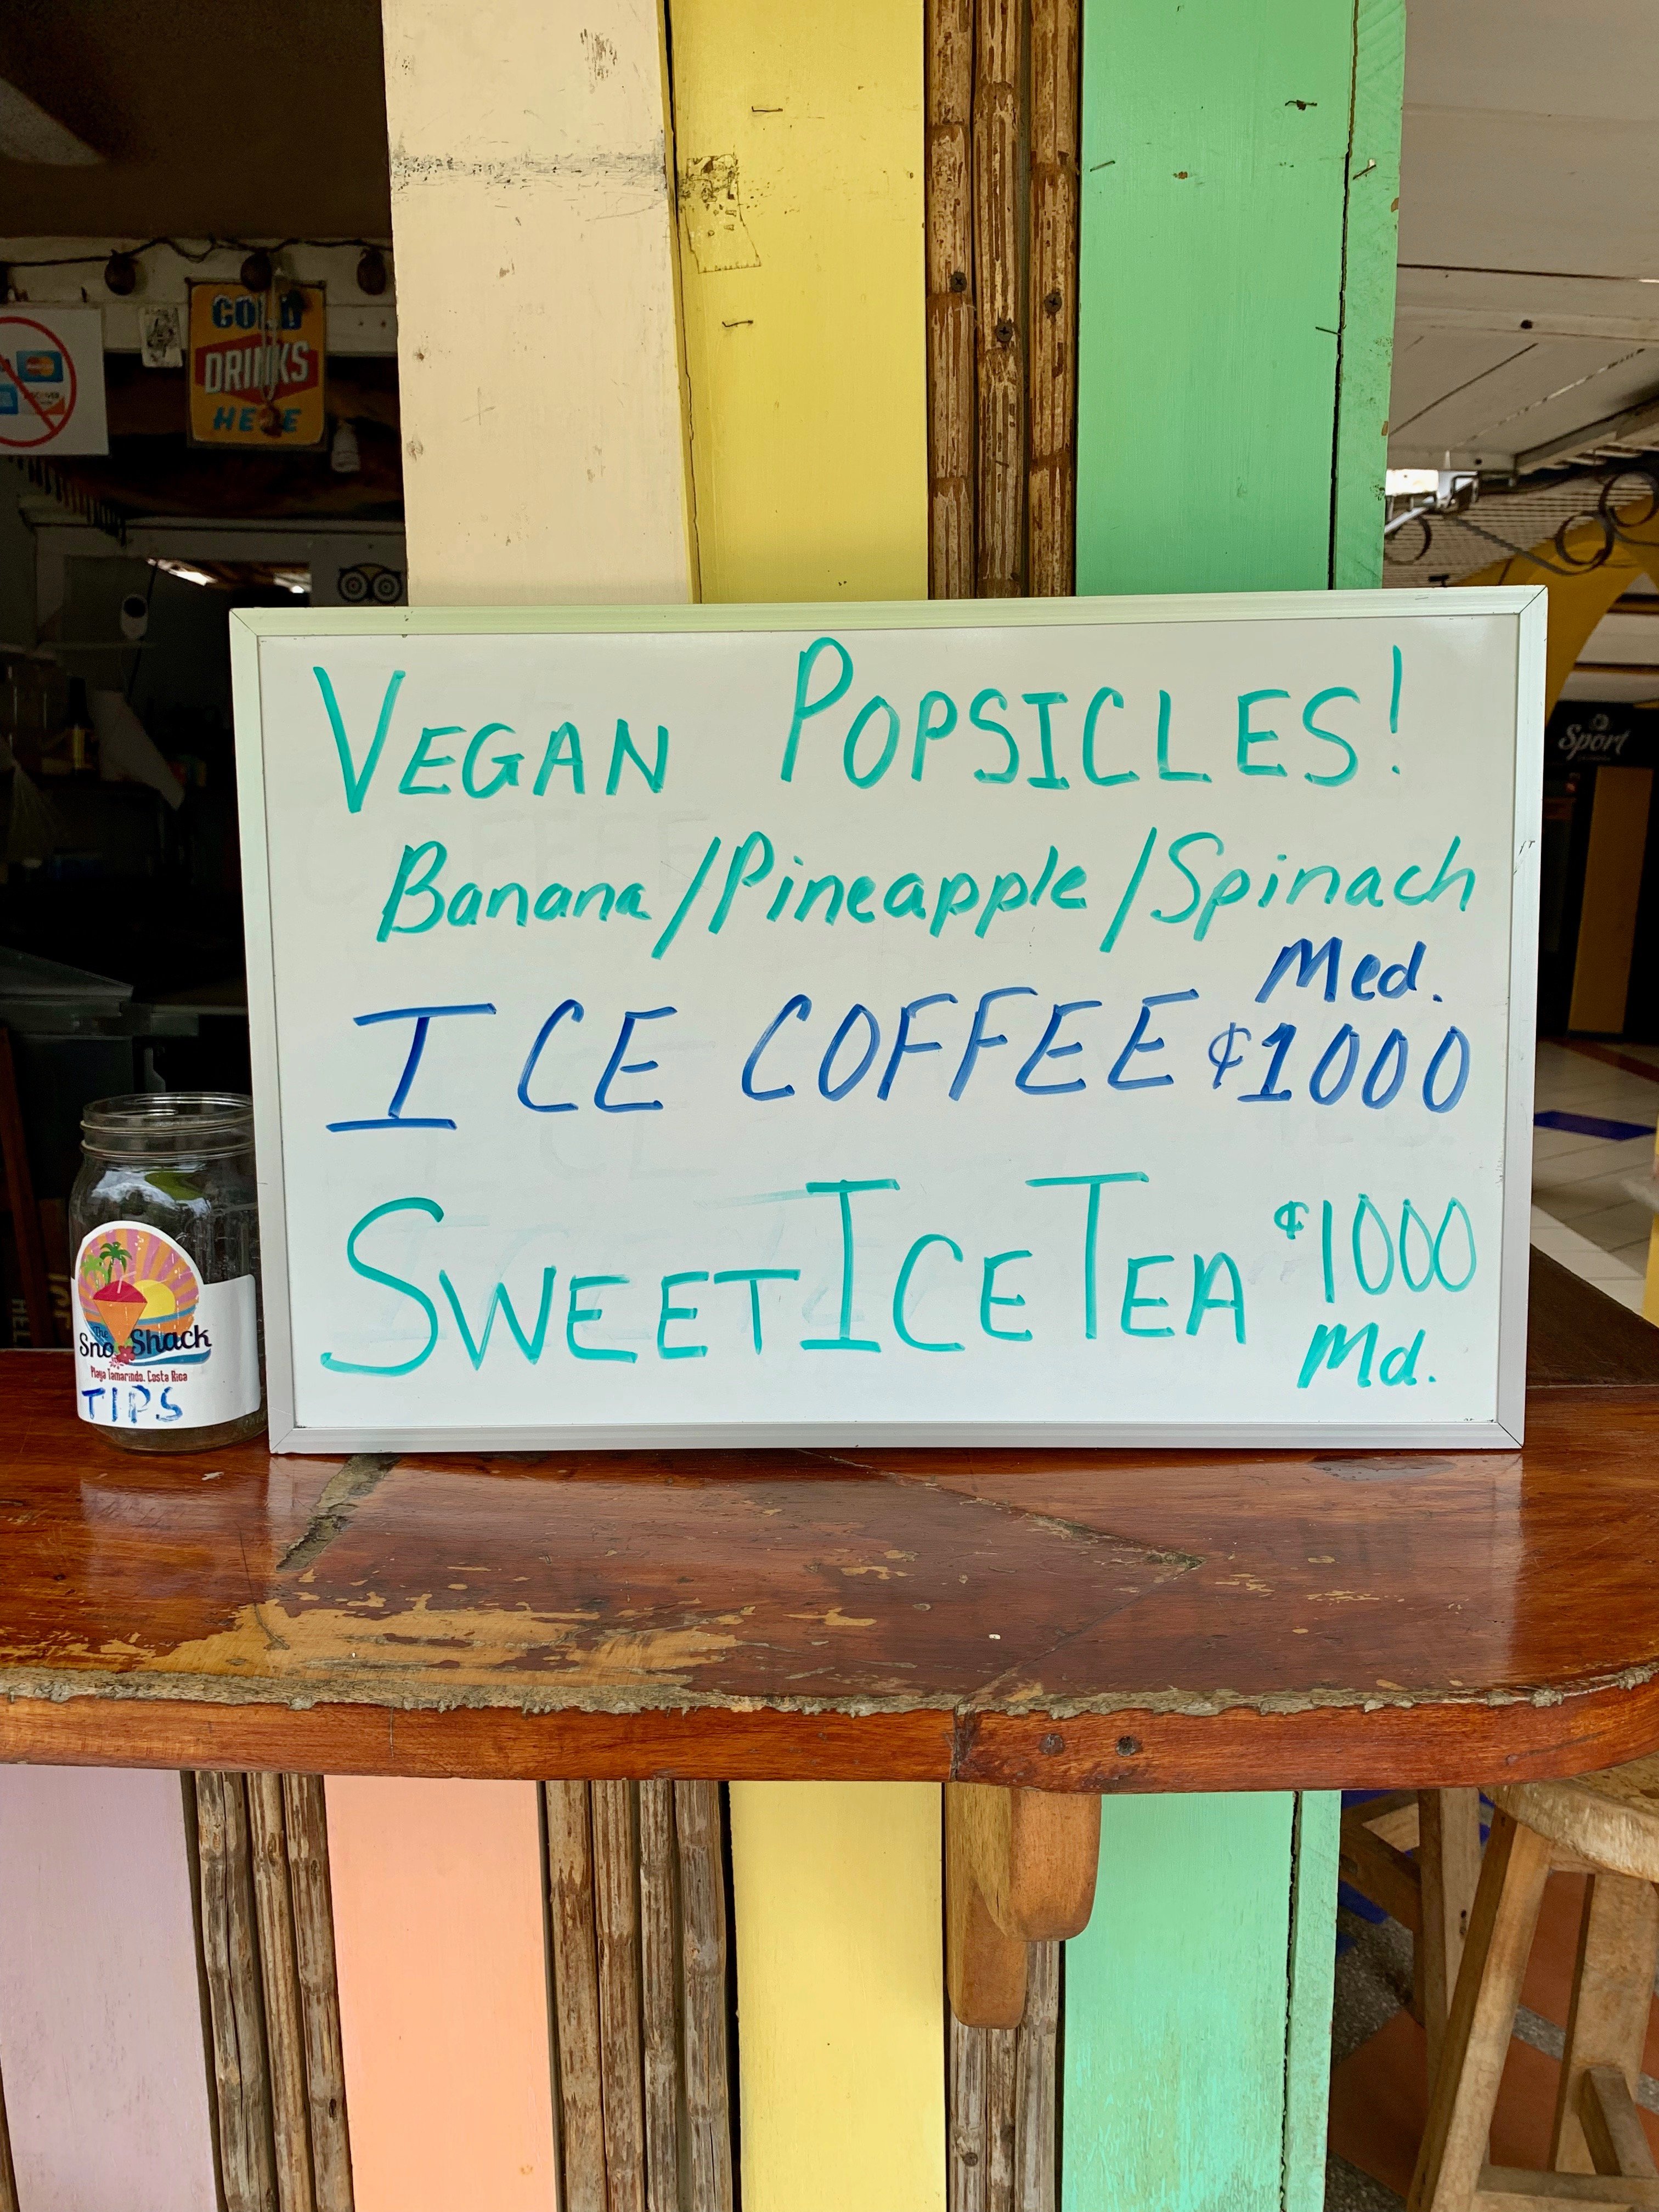 COLD
DRINKS
HERE
DISCOVER
Sport
VEGAN POPSICLES!
Banana/Pineapple/Spinach
Med.
ICE COFFEE ¢1000
SWEET ICE TEA ¢1000
Md.
The
Sno Shack
Playa Tamarindo, Costa Rica
TIPS